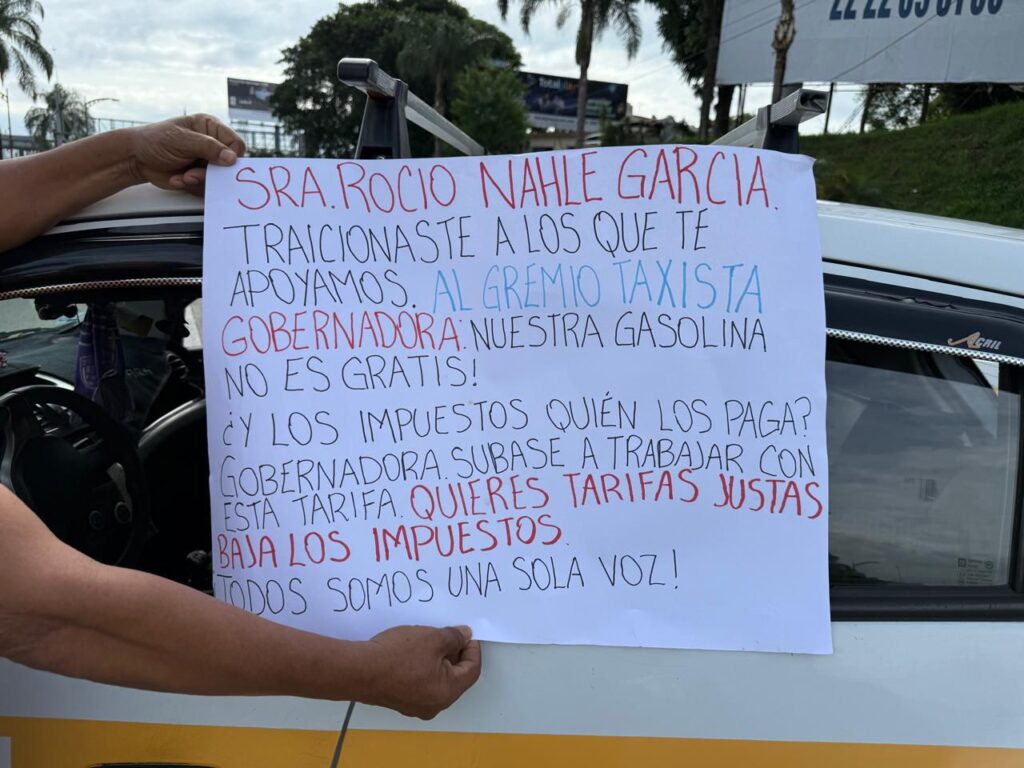 SRA. ROCIO NAHLE GARCIA.
TRAICIONASTE A LOS QUE TE
APOYAMOS. AL GREMIO TAXISTA
GOBERNADORA. NUESTRA GASOLINA
NO ES GRATIS!
¿Y LOS IMPUESTOS QUIÉN LOS PAGA?
GOBERNADORA. SUBASE A TRABAJAR CON
ESTA TARIFA. QUIERES TARIFAS JUSTAS
BAJA LOS IMPUESTOS.
TODOS SOMOS UNA SOLA VOZ!